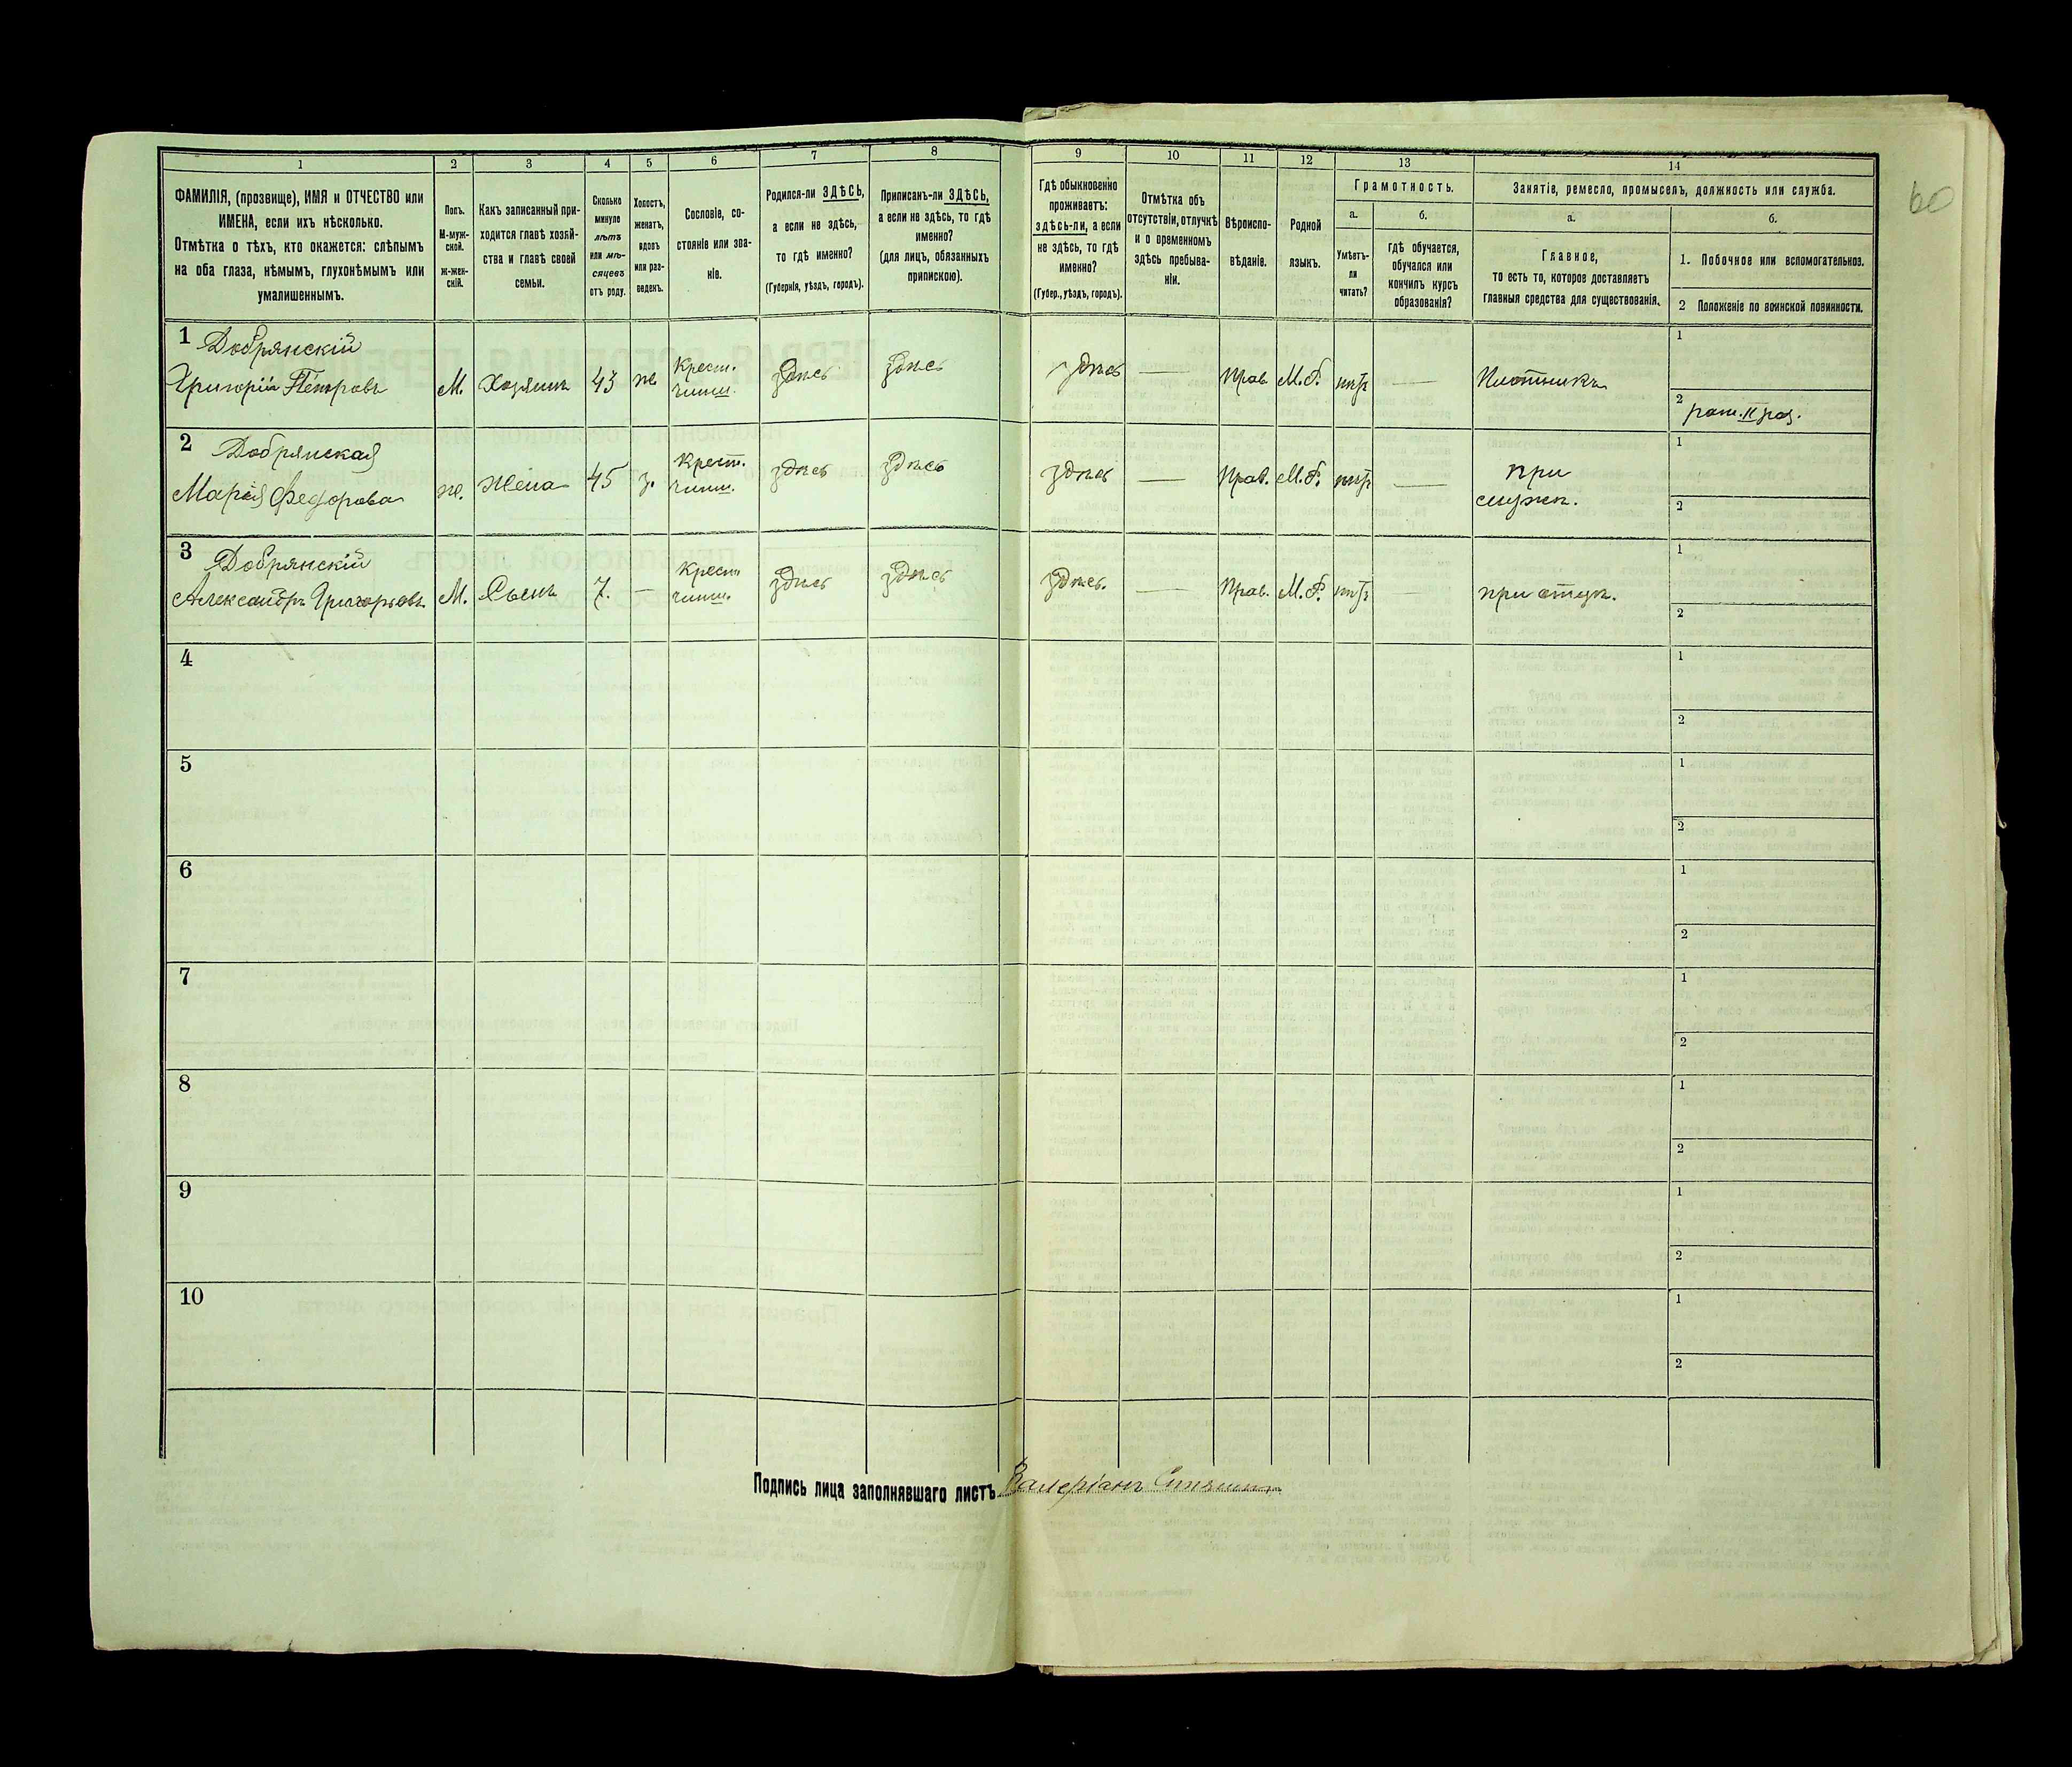 60
1
2
3
4
5
6
7
8
9
10
11
12
13
14
ФАМИЛІЯ, (прозвище), ИМЯ и ОТЧЕСТВО или
ИМЕНА, если ихъ нѣсколько.
Отмѣтка о тѣхъ, кто окажется: слѣпымъ
на оба глаза, нѣмымъ, глухонѣмымъ или
умалишеннымъ.
Полъ.
М-муж-
ской.
ж-жен-
скій.
Какъ записанный при-
ходится главѣ хозяй-
ства и главѣ своей
семьи.
Сколько
минуло
лѣтъ
или мѣ-
сяцевъ
отъ роду.
Холостъ,
женатъ,
вдовъ
или раз-
веденъ.
Сословіе, со-
стояніе или зва-
ніе.
Родился-ли ЗДѢСЬ,
а если не здѣсь,
то гдѣ именно?
(Губернія, уѣздъ, городъ).
Приписанъ-ли ЗДѢСЬ,
а если не здѣсь, то гдѣ
именно?
(для лицъ, обязанныхъ
припискою).
Гдѣ обыкновенно
проживаетъ:
здѣсь-ли, а если
не здѣсь, то гдѣ
именно?
(Губер., уѣздъ, городъ).
Отмѣтка объ
отсутствіи, отлучкѣ
и о временномъ
здѣсь пребыва-
ніи.
Вѣроиспо-
вѣданіе.
Родной
языкъ.
Грамотность.
а.
Умѣетъ-
ли
читать?
б.
гдѣ обучается,
обучался или
кончилъ курсъ
образованія?
Занятіе, ремесло, промыселъ, должность или служба.
а.
Главное,
то есть то, которое доставляетъ
главныя средства для существованія.
б.
1. Побочное или вспомогательное.
2 Положеніе по воинской повинности.
1 Добрянскій
Григорій Петровъ
М.
Хозяинъ
43
ж.
Крест.
здѣсь
здѣсь
здѣсь
—
Прав.
М.Р.
нѣтъ
—
Плотникъ
1
2 рат. II раз.
2 Добрянская
Марія Федорова
ж.
Жена
45
з.
Крест.
здѣсь
здѣсь
здѣсь
—
Прав.
М.Р.
нѣтъ
—
при
мужѣ.
1
2
3 Добрянскій
Александръ Григорьевъ
М.
Сынъ
7.
—
Крест.
здѣсь
здѣсь
здѣсь.
—
Прав.
М.Р.
нѣтъ
—
при отцѣ.
1
2
4
1
2
5
1
2
6
1
2
7
1
2
8
1
2
9
1
2
10
1
2
Подпись лица заполнявшаго листъ Валеріанъ